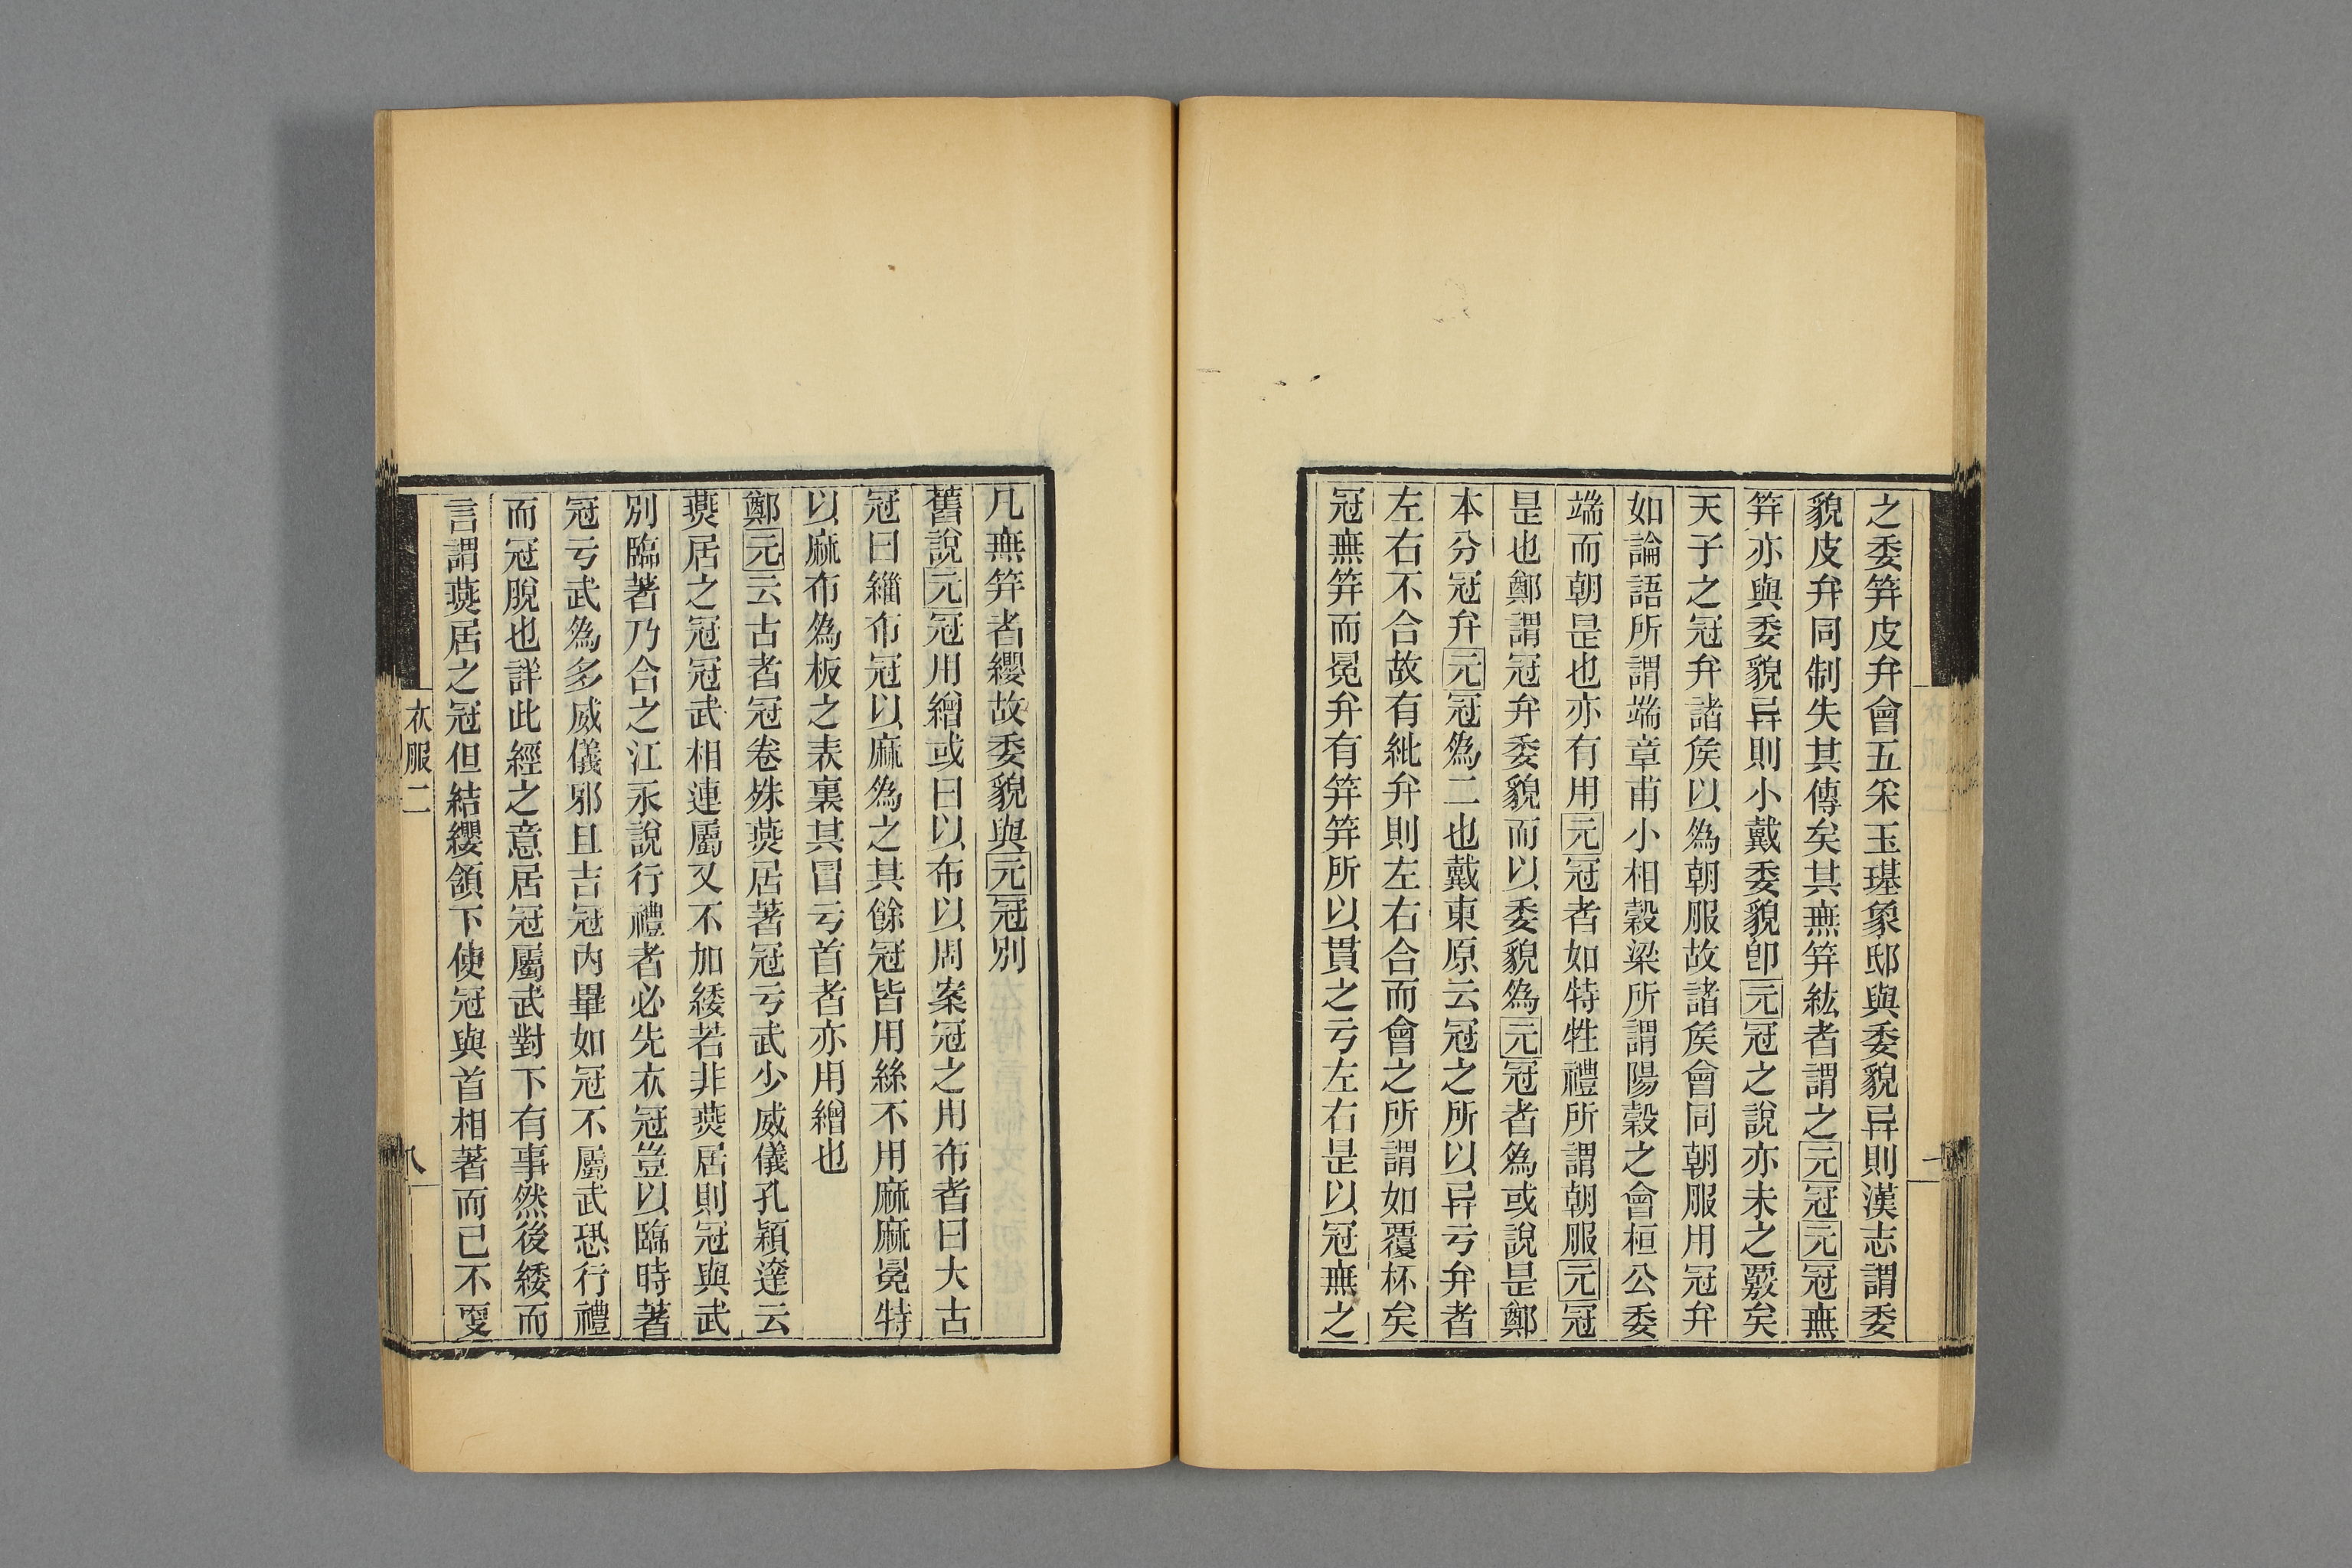 之委笄皮弁會五采玉璂象邸與委貌异則漢志謂委
貌皮弁同制失其傳矣其無笄紘者謂之元冠元冠無
笄亦與委貌异則小戴委貌卽元冠之說亦未之覈矣
天子之冠弁諸矦以爲朝服故諸矦會同朝服用冠弁
如論語所謂端章甫小相穀梁所謂陽穀之會桓公委
端而朝是也亦有用元冠者如特牲禮所謂朝服元冠
是也鄭謂冠弁委貌而以委貌爲元冠者爲或說是鄭
本分冠弁元冠爲二也戴東原云冠之所以异亏弁者
左右不合故有紕弁則左右合而會之所謂如覆杯矣
冠無笄而冕弁有笄笄所以貫之亏左右是以冠無之
凡無笄者纓故委貌與元冠別
舊說元冠用繒或曰以布以周案冠之用布者曰大古
冠曰緇布冠以麻爲之其餘冠皆用絲不用麻麻冕特
以麻布爲板之表裏其冒亏首者亦用繒也
鄭元云古者冠卷殊燕居著冠亏武少威儀孔穎達云
燕居之冠冠武相連屬又不加緌若非燕居則冠與武
別臨著乃合之江永說行禮者必先衣冠豈以臨時著
冠亏武爲多威儀邪且吉冠內畢如冠不屬武恐行禮
而冠脫也詳此經之意居冠屬武對下有事然後緌而
言謂燕居之冠但結纓頷下使冠與首相著而已不㪅
衣服二
八